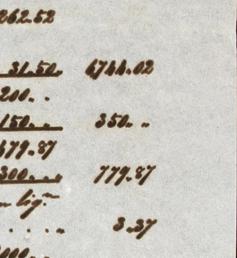 262.52
31.50. 6744.02
200. .
150. . 350. .
479.87
300. . . 779.87
lig.
. . . . 3.37